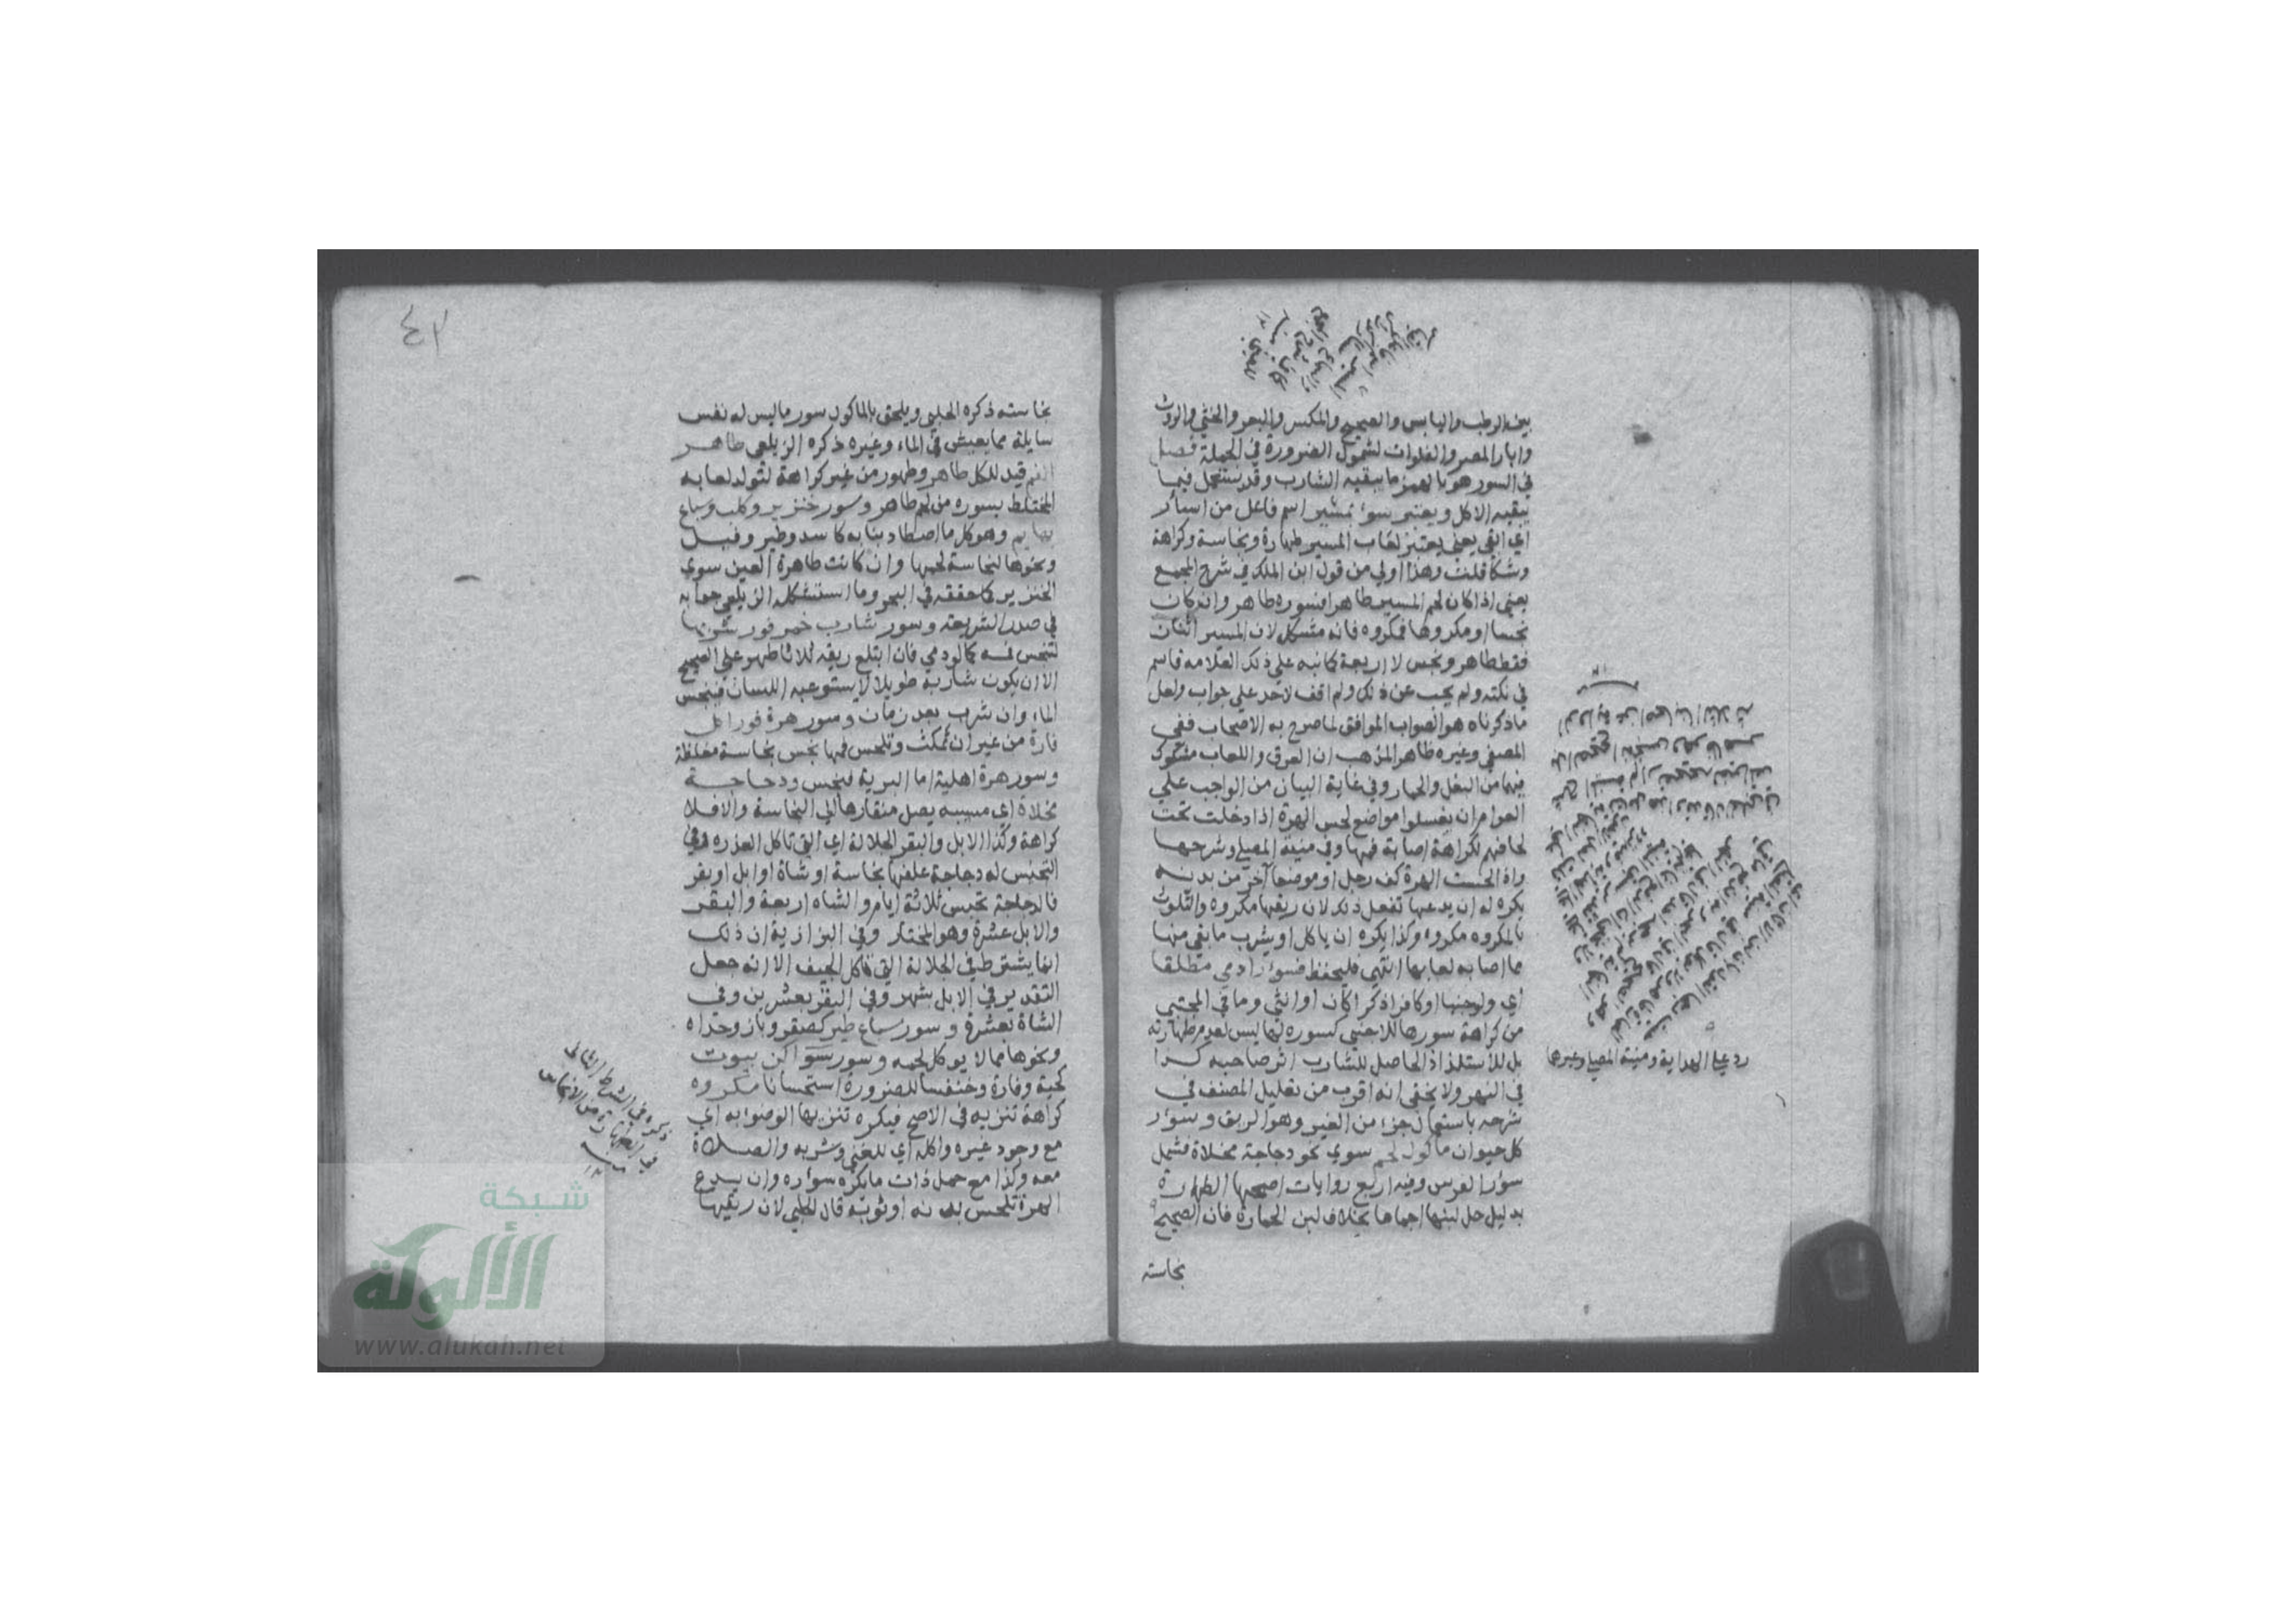 بين الرطب واليابس والصحيح والمكسر والبعر والخثي والروث
وابار المصر والفلوات لشمول الضرورة في الجملة فصل
في السور هو بالهمز ما يبقيه الشارب وقد يستعمل فيما
يبقيه الاكل ويعتبر سوءر بمسير اسم فاعل من اسأر
اي ابقي يعني يعتبر لعاب المسير طهارة ونجاسة وكراهة
وشكا قلت وهذا اولي من قول ابن الملك في شرح المجمع
يعني اذا كان لحم المسير طاهرا فسوره طاهر وان كان
نجسا او مكروها فمكروه فانه مشكل لان المسير اثنان
فقط طاهر ونجس لا اربعة كما نبه علي ذلك العلامه قاسم
في نكته ولم يجب عن ذلك ولم اقف لاحد علي جواب ولعل
ما ذكرناه هو الصواب الموافق لما صرح به الاصحاب ففي
المصفي وغيره ظاهر المذهب ان العرق واللعاب مشكوك
فيهما من البغل والحمار وفي غاية البيان من الواجب علي
العوام ان يغسلوا مواضع لحس الهرة اذا دخلت تحت
لحافهم لكراهة اصابة فمها وفي منية المصلي وشرحها
واذا لحست الهرة كف رجل او موضعا آخر من بدنه
يكره له ان يدعها تفعل ذلك لان ريقها مكروه والتلوث
بالمكروه مكروه وكذا يكره ان ياكل او يشرب ما بقي منها
مما اصابه لعابها انتهي فليحفظ فسوءر ادمي مطلقا
اي ولو جنبا او كافرا ذكرا كان او انثي وما في المجتبي
من كراهة سورها للاجنبي كسوره لها ليس لعدم طهارته
بل للاستلذاذ الحاصل للشارب اثر صاحبه كذا
في النهر ولا يخفي انه اقرب من تعليل المصنف في
شرحه باستعمال جزء من الغير وهو الريق وسوءر
كل حيوان ماكول لحم سوي نحو دجاجة مخلاة فشمل
سوءر الفرس وفيه اربع روايات اصحها الطهارة
بدليل حل لبنها اجماعا بخلاف لبن الحمارة فان الصحيح
نجاسته
رد علي الهداية ومنية المصلي وغيرها
٤٢
نجاسته ذكره الحلبي ويلحق بالماكول سور ما ليس له نفس
سايلة مما يعيش في الماء وغيره ذكره الزيلعي طاهر
الفم قيد للكل طاهر وطهور من غير كراهة لتولد لعابه
المختلط بسوره من لحم طاهر وسور خنزير وكلب وسباع
بهايم وهو كل ما اصطاد بنابه كاسد وفهد وفيل
ونحوها لنجاسة لحمها وان كانت طاهرة العين سوي
الخنزير كما حققه في البحر وما استشكله الزيلعي جوابه
في صدر الشريعة وسور شارب خمر فور شربها
لتنجس فمه كما لو دمي فان ابتلع ريقه ثلاثا طهر علي الصحيح
الا ان يكون شاربه طويلا لا يستوعبه اللسان فينجس
الماء وان شرب بعد زمان وسور هرة فور اكل
فارة من غير ان تمكث وتلحس فمها نجس نجاسة مغلظة
وسور هرة اهلية اما البرية فنجس ودجاجة
مخلاة اي مسيبه يصل منقارها الي النجاسة والا فلا
كراهة وكذا الابل والبقر الجلالة اي التي تاكل العذره وفي
التجنيس له دجاجة علفها نجاسة او شاة او ابل او بقر
فالدجاجة تحبس ثلاثة ايام والشاه اربعة والبقر
والابل عشرة وهو المختار وفي البزازية ان ذلك
انما يشترط في الجلالة التي تاكل الجيف الا انه جعل
التقدير في الابل شهر وفي البقر بعشرين وفي
الشاة بعشرة وسور سباع طير كصقر وباز وحداه
ونحوها مما لا يوكل لحمه وسور سواكن بيوت
كحية وفارة وخنفسا للضرورة استحسانا مكروه
كراهة تنزيه في الاصح فيكره تنزيها الوضوء به اي
مع وجود غيره واكله اي للغني وشربه والصلاة
معه وكذا مع حمل ذات ما يكره سوءره وان يدع
الهرة تلحس بدنه او ثوبه قال الحلبي لان ريقها
ذكره في الشرط الثاني
شبكة
الألوكة
www.alukah.net